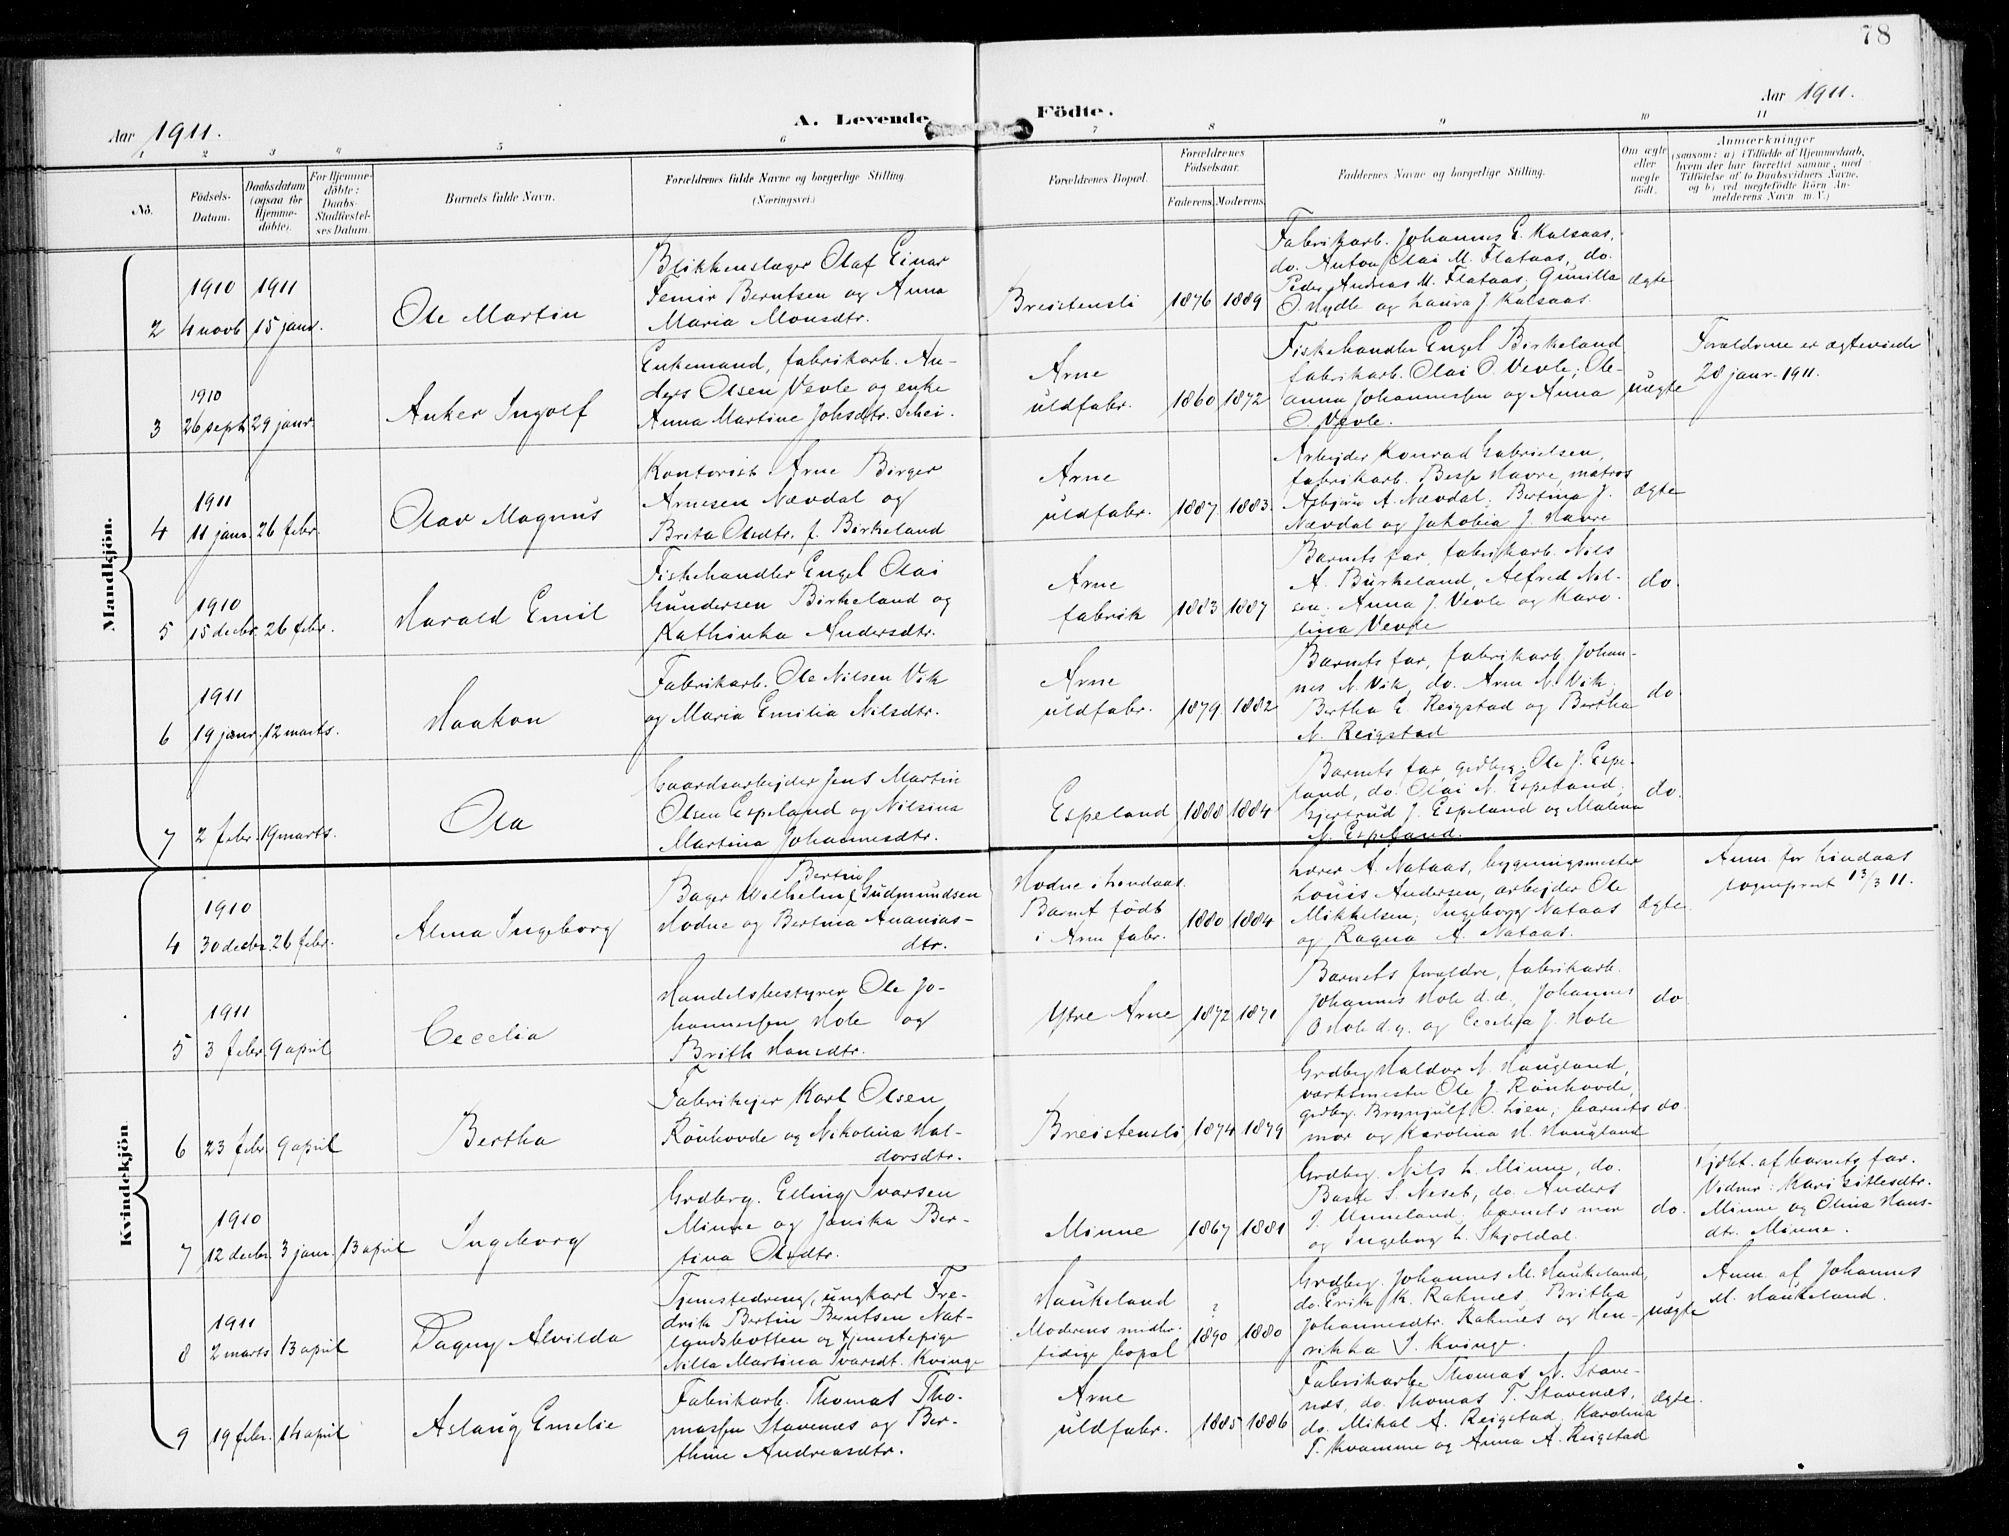 78
Aar 1911.
A. Levende Födte.
Aar 1911.
1 2 3 4 5 6 7 8 9 10 11
No.
Födsels-
Datum.
Daabsdatum
(ogsaa for
Hjemme-
döbte).
For Hjemme-
döbte:
Daabs-
Stadfæstel-
ses Datum.
Barnets fulde Navn.
Forældrenes fulde Navne og borgerlige Stilling.
(Næringsvei.)
Forældrenes Bopæl.
Forældrenes
Födselsaar.
Faderens. Moderens.
Faddernes Navne og borgerlige Stilling.
Om ægte
eller
uægte
født.
Anmærkninger
(saasom: a) i Tilfælde af Hjemmedaab,
hvem der har forrettet samme, med
Tilføielse af to Daabsvidners Navne,
og b) ved uægtefödte Börn An-
melderens Navn m. V.)
Mandkjön.
2
1910
4 novb
1911
15 janr.
Ole Martin
Blikkenslager Olaf Einar
Semir Berntsen og Anna
Maria Monsdtr.
Breistensli
1876 1889
Fabrikarb. Johannes E. Kalsaas,
do. Anton Olai M. Flataas, do.
Peder Andreas M. Flataas, Gunilla
O. Mydle og Laura J. Kalsaas.
ægte
3
1910
26 sept.
29 janr.
Anker Ingolf
Enkemand, fabrikarb. An-
ders Olsen Vevle og enke
Anna Martine Johsdtr. Schei.
Arne
uldfabr.
1860 1872
Fiskehandler Engel Birkeland
fabrikarb. Olai O. Vevle, Ole-
anna Johannessen og Anna
O. Vevle.
uægte
Forældrene er ægteviede
28 janr. 1911.
4
1911
11 janr.
26 febr.
Olav Magnus
Kontorist Arne Birger
Arnesen Nævdal og
Brita Olsdtr. f. Birkeland
Arne
uldfabr.
1887 1883
Arbejder Konrad Gabrielsen,
fabrikarb. Besse Havre, matros
Asbjörn A. Nævdal, Bertina J.
Nævdal og Jakobia J. Havre
ægte
5
1910
15 decbr.
26 febr.
Harald Emil
Fiskehandler Engel Olai
Gundersen Birkeland og
Kathinka Andersdtr.
Arne
fabrik
1883 1887
Barnets far, fabrikarb. Nils
A. Burkeland, Alfred Nil-
sen. Anna J. Vevle og Karo-
lina Vevle
do.
6
1911
19 janr.
12 marts.
Haakon
Fabrikarb. Ole Nilsen Vik
og Maria Emilia Nilsdtr.
Arne
uldfabr.
1879 1882
Barnets far, fabrikarb. Johan-
nes N. Vik, do. Arne N. Vik,
Bertha E. Reigstad og Bertha
N. Reigstad
do.
7
2 febr.
19 marts.
Ola
Gaardsarbejder Jens Martin
Olsen Espeland og Nilsina
Martina Johannesdtr.
Espeland
1888 1884
Barnets far, grdbrg. Ole J. Espe-
land, do. Olai N. Espeland,
Gjertrud J. Espeland og Malena
N. Espeland.
do.
Kvindekjön.
4
1910
30 decbr.
26 febr.
Alma Ingeborg
Bertin
Bager Wilhelm Gudmundsen
Hodne og Bertina Ananias-
dtr.
Hodne i Lindaas.
Barnet født
i Arne fabr.
1880 1884
Lærer A. Nataas, bygningsmester
Louis Andersen, arbejder Ole
Mikkelsen, Ingeborg Nataas
og Ragna A. Nataas.
ægte
Anm. for Lindaas
sogneprest 13/3 11.
5
1911
3 febr.
9 april
Cecelia
Handelsbestyrer Ole Jo-
hannessen Hole og
Brith Hansdtr.
Ytre Arne
1872 1871
Barnets forældre, fabrikarb.
Johannes Hole d.æ., Johannes
O. Hole d.y. og Cecelia J. Hole
do
6
23 febr.
9 april
Bertha
Fabrikejer Karl Olsen
Rönhovde og Nikolina Hal-
dorsdtr.
Breistensli
1874 1879
Grdbrg Haldor N. Haugland,
værksmester Ole J. Rönhovde,
grdbrg. Brynjulf O. Lien; barnets
mor og Karolina H. Haugland
do.
7
1910
12 decbr.
3 janr.
13 april
Ingeborg
Grdbrg. Elling Ivarsen
Minne og Janika Ber-
tina Olsdtr.
Minne
1867 1881
Grdbrg. Nils L. Minne, do.
Baste S. Neset, do. Anders
I. Unneland; barnets mor
og Ingeborg L. Skjoldal.
do.
Hjdbt. af barnets far.
Vidner: Kari Sillesdtr.
Minne og Olina Hans-
dtr. Minne.
8
1911
2 marts
13 april
Dagny Alvilda
Tjenestedreng, ungkarl Fre-
drik Bertin Berntsen Nat-
landsbotten og tjenestepige
Nilla Martina Ivarsdt. Kvinge
Haukeland
Moderens midler-
tidige bopæl
?
1890 1880
Grdbrg. Johannes M. Haukeland,
do. Erik K. Raknes, Britha
Johannesdtr. Raknes og Hen-
rikka I. Kvinge.
uægte
Anm. af Johannes
M. Haukeland.
9
19 febr.
14 april
Aslaug Emelie
Fabrikarb. Thomas Tho-
massen Stavenes og Ber-
thine Andreasdtr.
Arne
uldfabr.
1885 1886
Fabrikarbr Thomas N. Stave-
nes, do. Thomas T. Stavenes,
do. Mikal A. Reigstad, Karolina
T. Kvamme og Anna A. Reigstad
ægte.